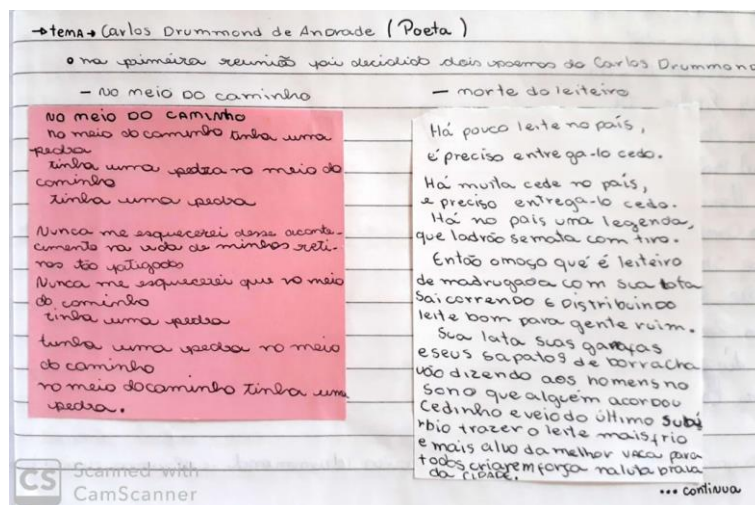 → tema → Carlos Drummond de Andrade (Poeta)
• na primeira reunião foi decidido dois poemas do Carlos Drummond
- NO MEIO DO CAMINHO
NO MEIO DO CAMINHO
no meio do caminho tinha uma
pedra
tinha uma pedra no meio do
caminho
tinha uma pedra
Nunca me esquecerei desse aconte-
cimento na vida de minhas reti-
nas tão fatigadas
Nunca me esquecerei que no meio
do caminho
tinha uma pedra
tinha uma pedra no meio
do caminho
no meio do caminho tinha uma
pedra.
- morte do leiteiro
Há pouco leite no país,
é preciso entrega-lo cedo.
Há muita cede no país,
e preciso entrega-lo cedo.
Há no país uma legenda,
que ladrão se mata com tiro.
Então o moço que é leiteiro
de madrugada com sua lata
sai correndo e distribuindo
leite bom para gente ruim.
Sua lata suas garrafas
e seus sapatos de borracha
vão dizendo aos homens no
sono que alguém acordou
cedinho e veio do último subú
rbio trazer o leite mais frio
e mais alvo da melhor vaca para
todos criarem força na luta brava
da CIDADE.
... continua
CS Scanned with
CamScanner